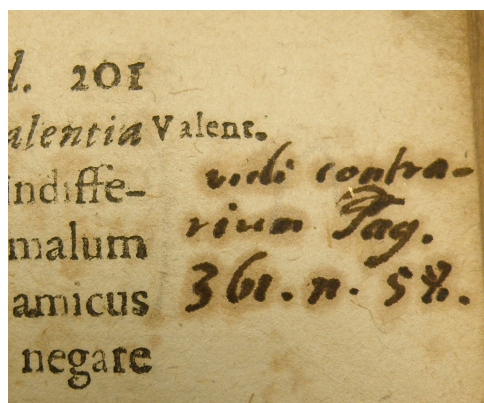 d. 201
alentia Valent.
indiffe-
malum
amicus
negare
vidi contra-
rium Pag.
361. n. 58.